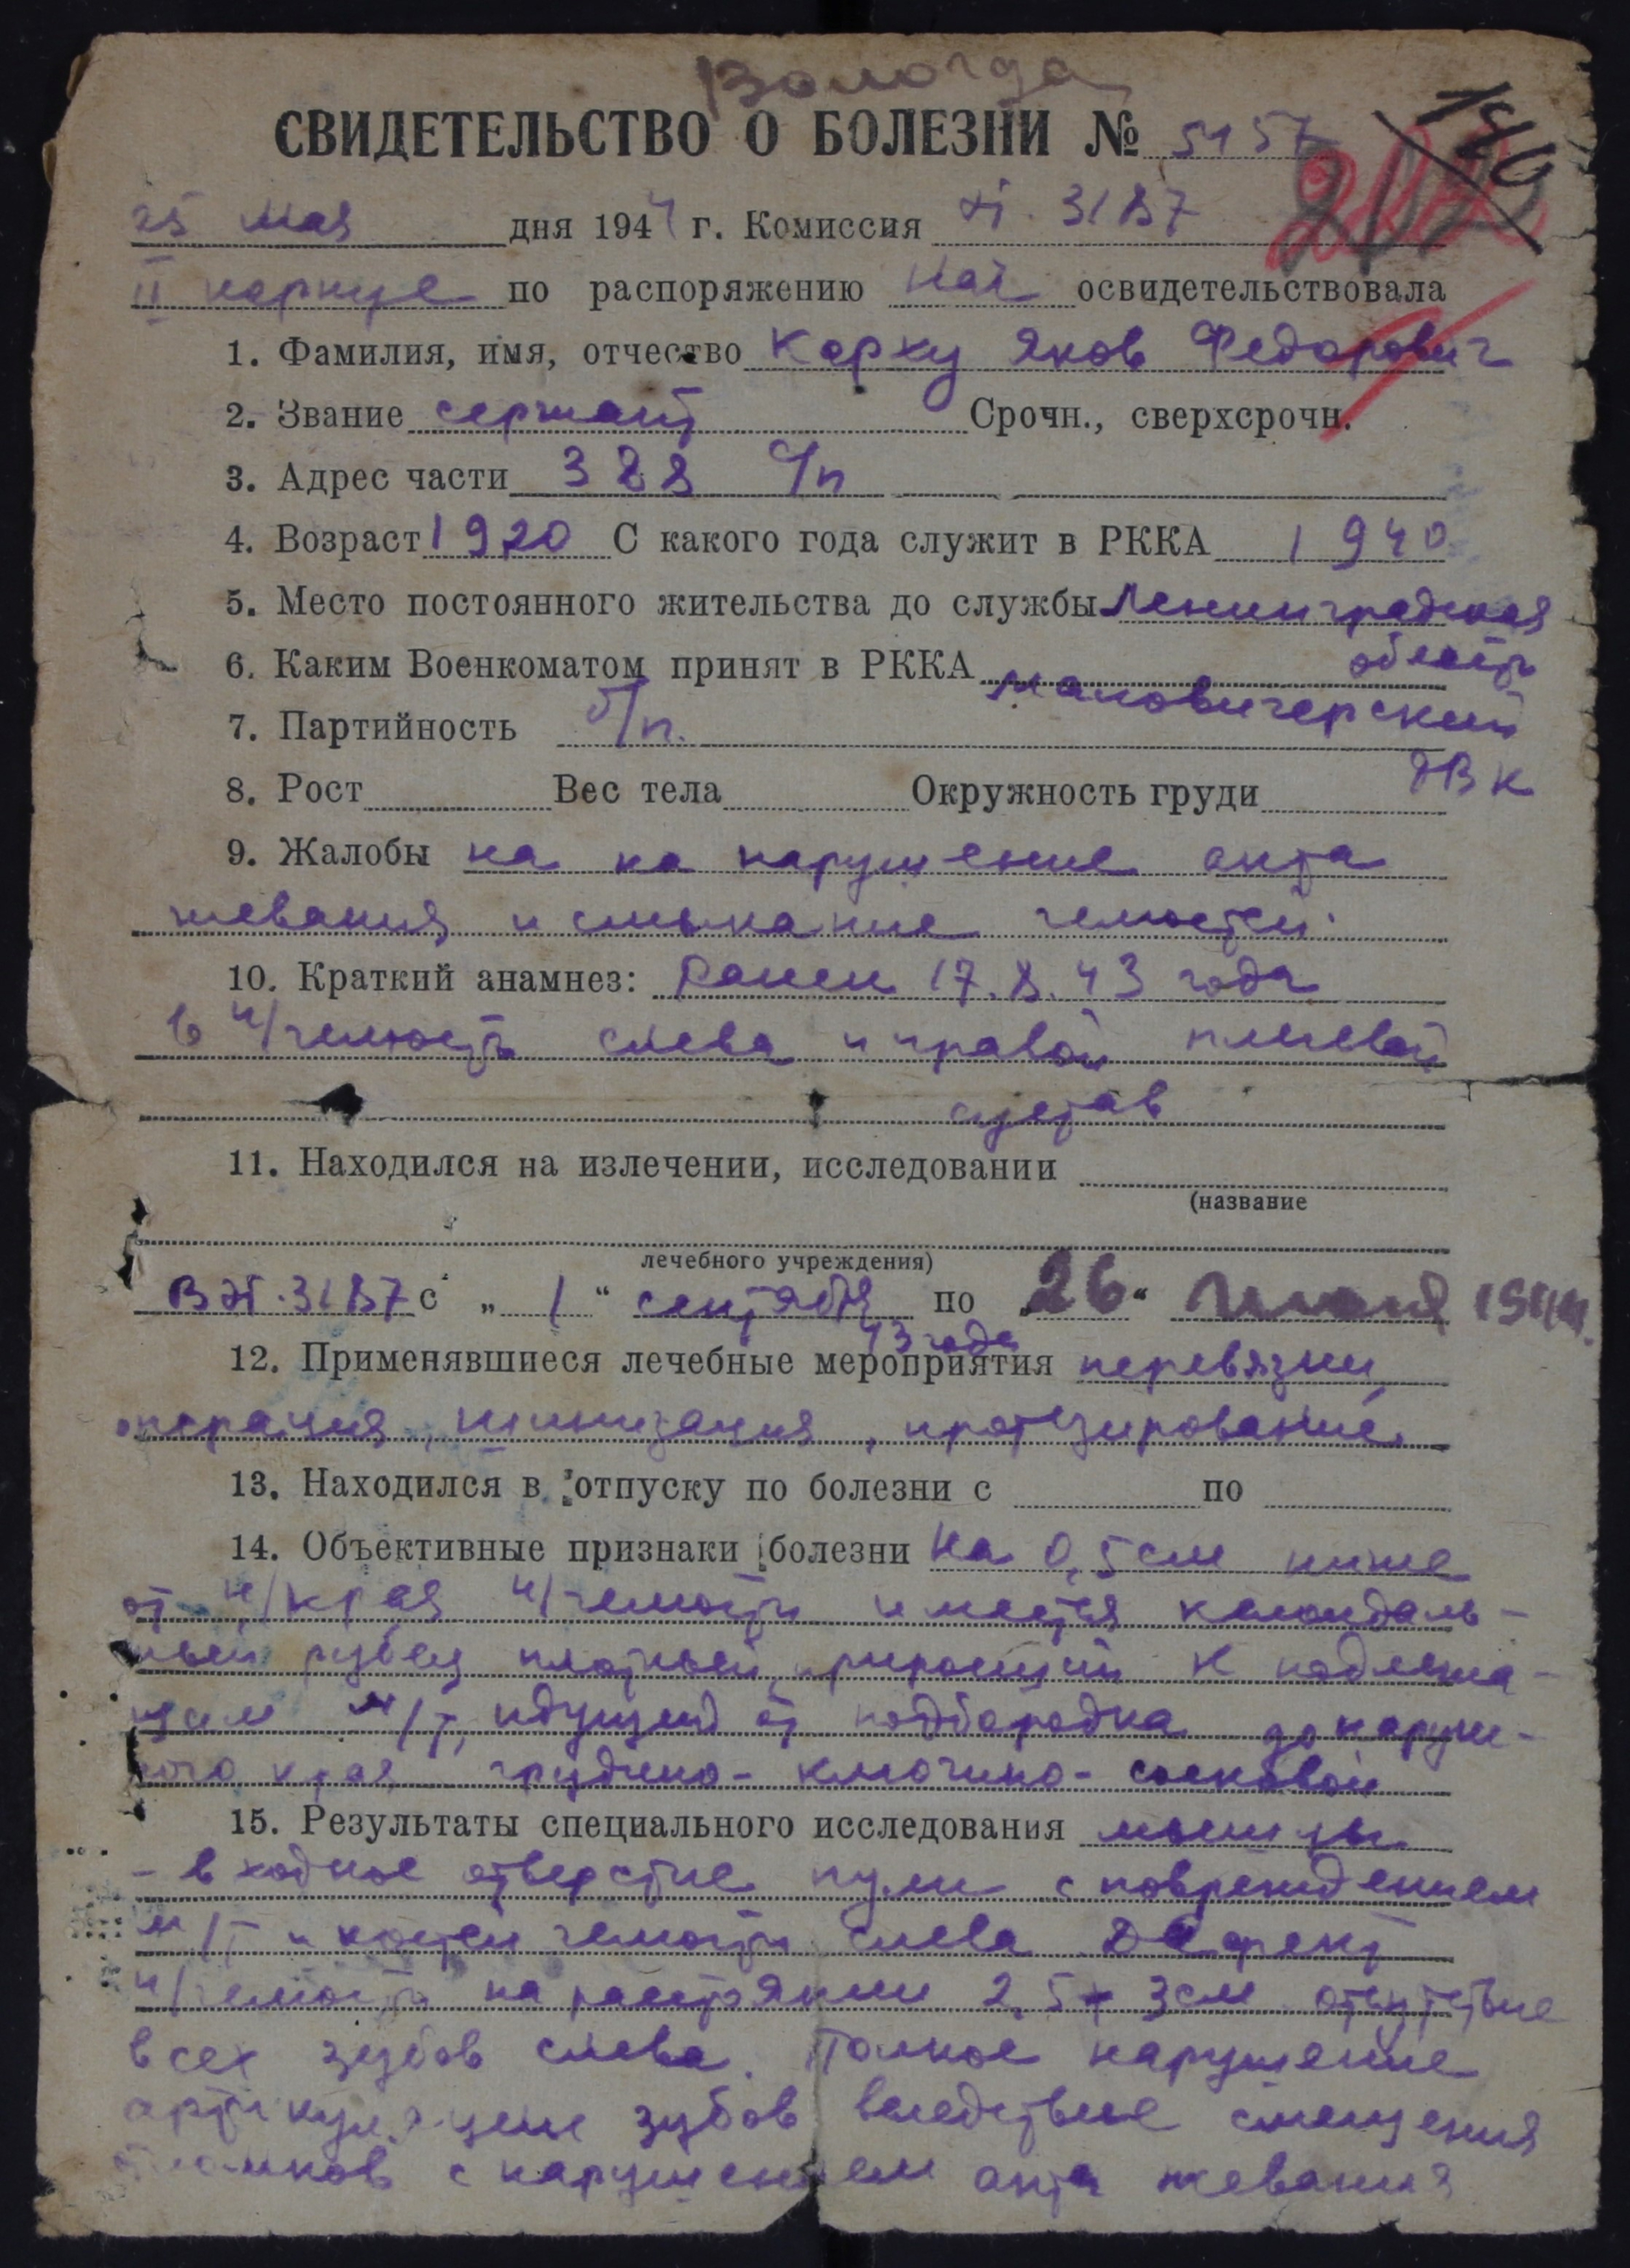 Вологда
СВИДЕТЕЛЬСТВО О БОЛЕЗНИ № 5157
25 мая дня 1944 г. Комиссия 3187
II корпуса по распоряжению Нач освидетельствовала
1. Фамилия, имя, отчество Карху Яков Федорович
2. Звание сержант Срочн., сверхсрочн.
3. Адрес части 388 с/п
4. Возраст 1920 С какого года служит в РККА 1940
5. Место постоянного жительства до службы Ленинградская
область
6. Каким Военкоматом принят в РККА
7. Партийность б/п.
РВК
8. Рост Вес тела Окружность груди
9. Жалобы на на нарушение акта
жевания и смыкание челюстей.
10. Краткий анамнез: Ранен 17.8.43 года
в н/челюсть слева и правой плечевой
сустав
11. Находился на излечении, исследовании
(название
лечебного учреждения)
3187 с „ 1 “ сентября по „ 26 “ июня 1944.
43 года
12. Применявшиеся лечебные мероприятия перевязки,
операция, шинизация, протезирование.
13. Находился в отпуску по болезни с по
14. Объективные признаки болезни На 0,5 см ниже
от н/края н/челюсти имеется келоидаль-
ный рубец плотный, приросший к подлежа-
щим м/т, идущий от подбородка до наруж-
ного края грудино-ключично-сосковой
15. Результаты специального исследования мышцы
- входное отверстие пули с повреждением
м/т и костей челюсти слева Дефект
н/челюсти на расстоянии 2,5 + 3 см отсутствие
всех зубов слева. Полное нарушение
артикуляции зубов вследствие смещения
отломков с нарушением акта жевания